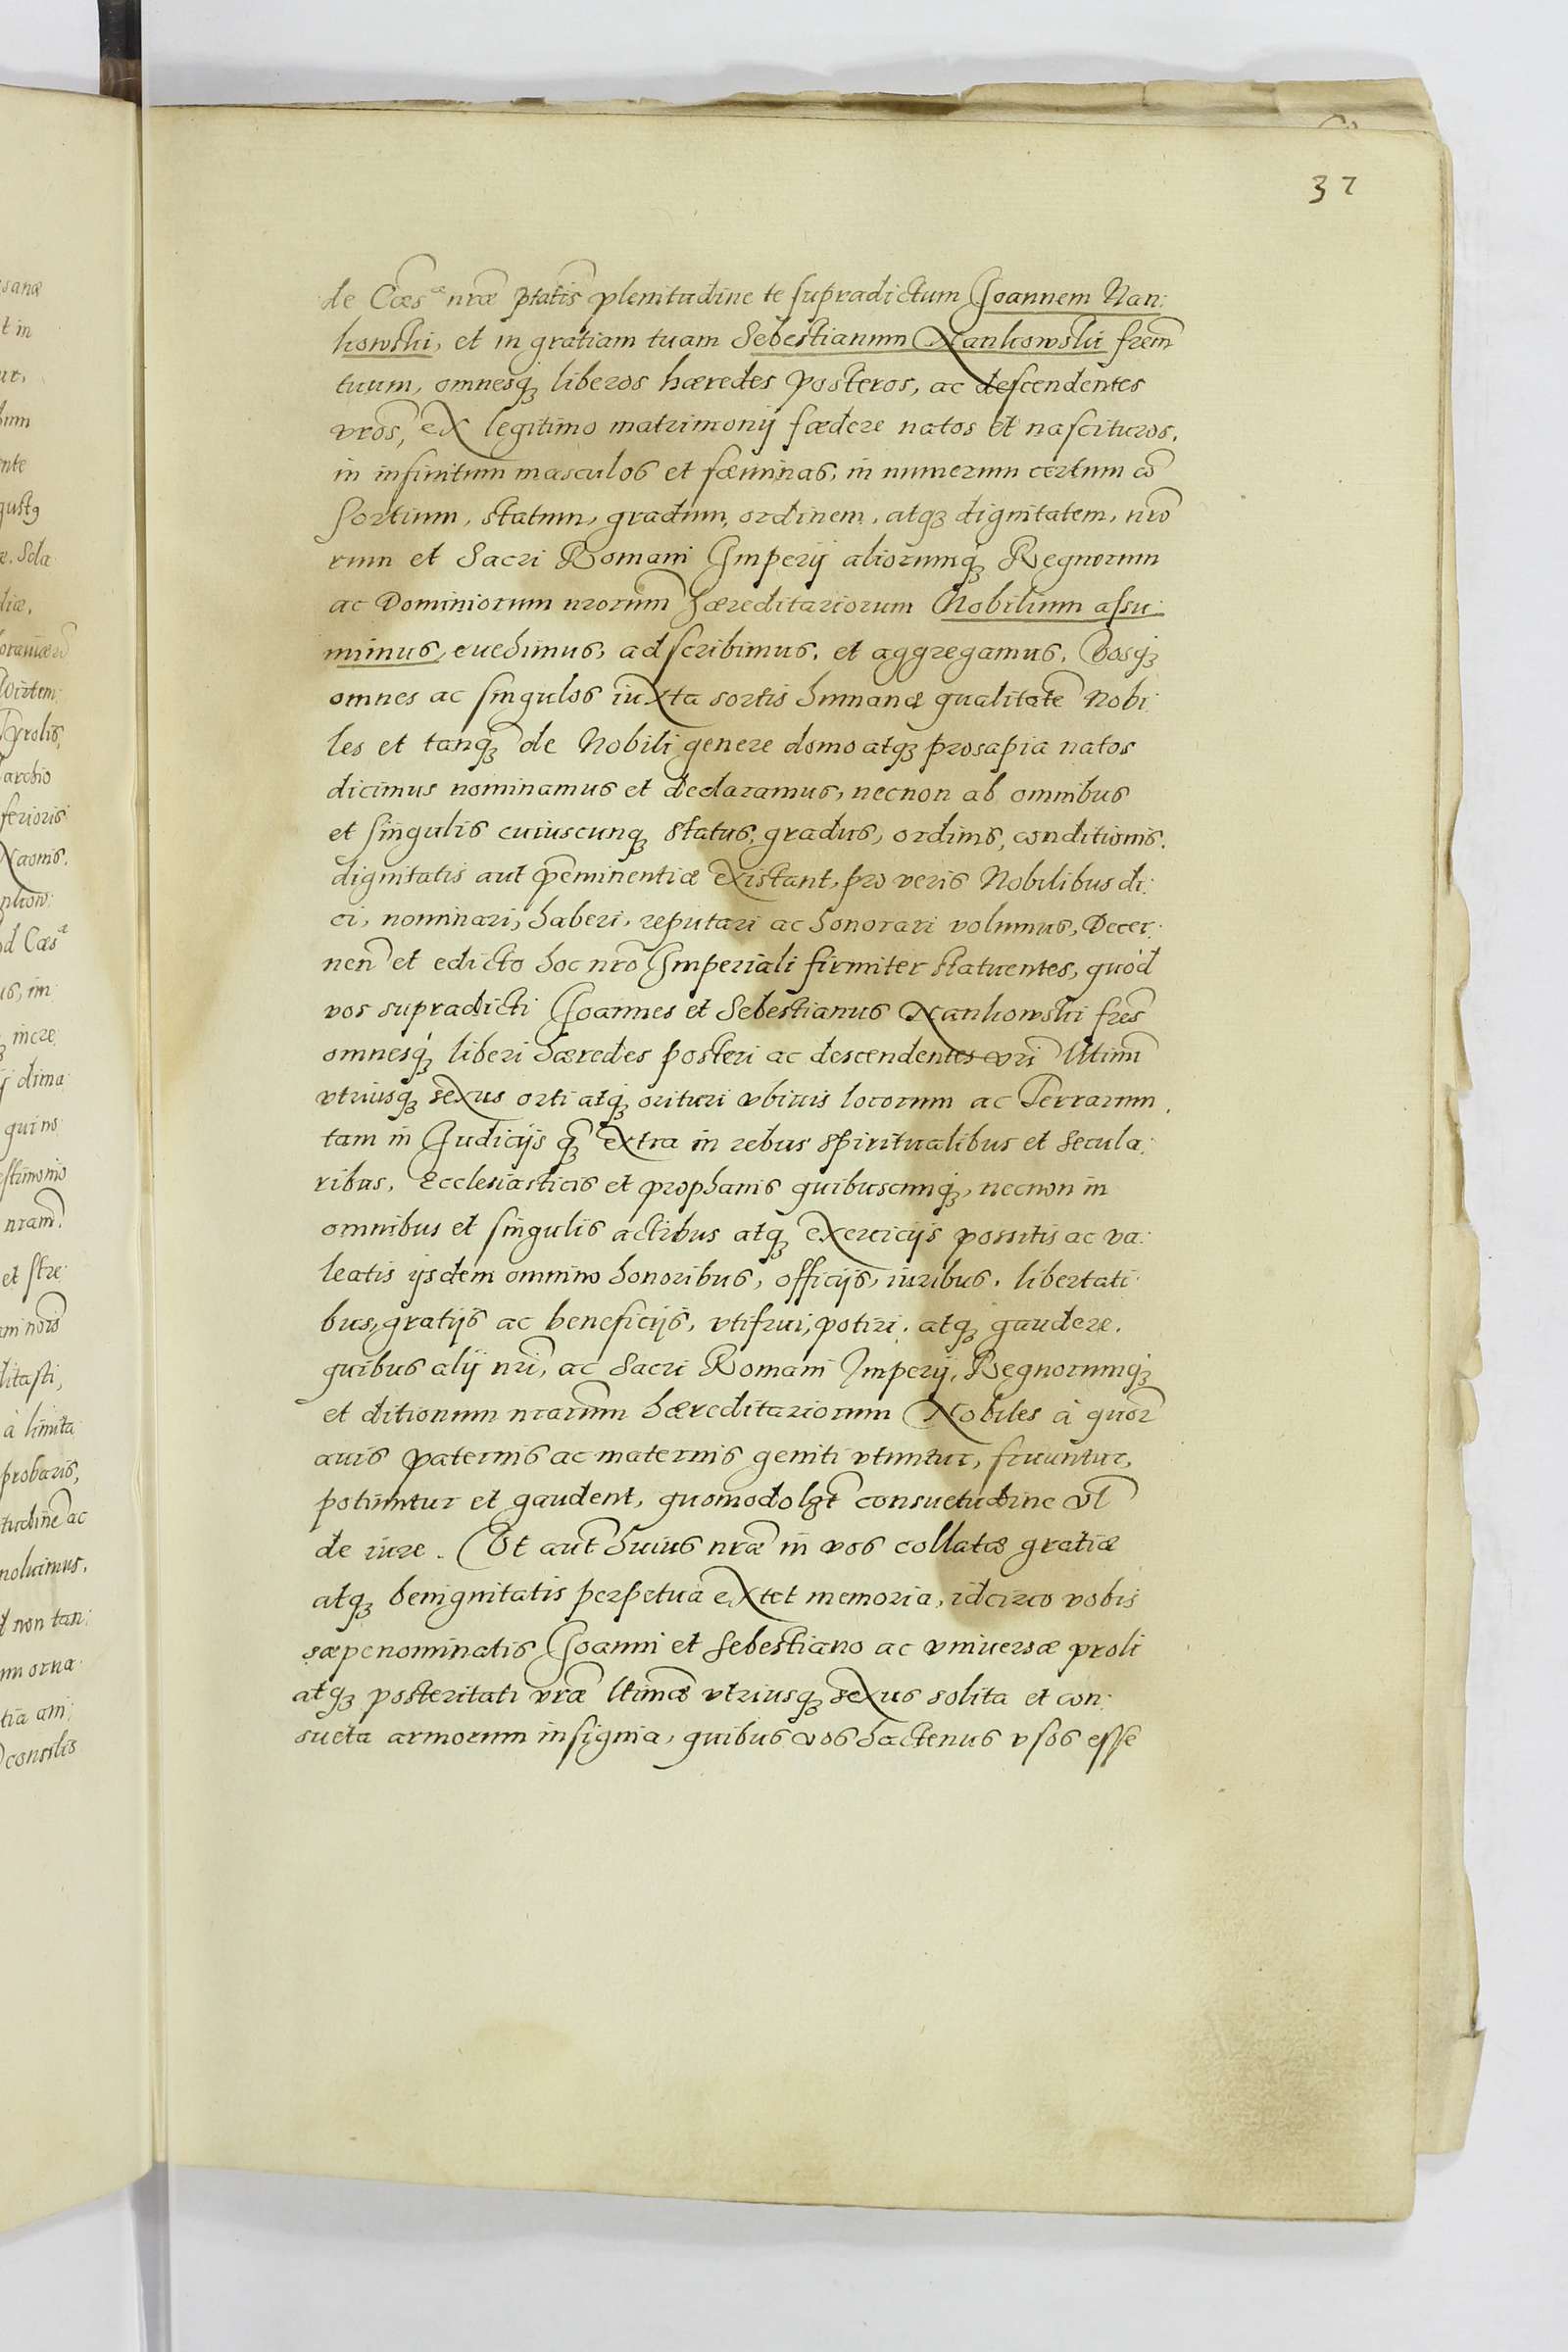 37
de Cæs.æ nræ ptatis plenitudine te supradictum Joannem Nan:
kowski, et in gratiam tuam Sebestianum Nankowski frem
tuum, omnesq3 liberos hæredes posteros, ac descendentes
vros, ex legitimo matrimonij fædere natos et nascituros,
in infinitum masculos et fæminas, in numerum certum co
sortium, statum, gradum, ordinem, atq3 dignitatem, nro
rum et Sacri Romani Imperij aliorumq3 Regnorum
ac Dominiorum nrorum hæreditariorum Nobilium assu:
mimus, euehimus, adscribimus, et aggregamus, Vosq3
omnes ac singulos iuxta sortis humanæ qualitate Nobi
les et tanq3 de Nobili genere domo atq3 prosapia natos
dicimus nominamus et declaramus, necnon ab omnibus
et singulis cuiuscunq3 status, gradus, ordinis, conditionis,
dignitatis aut peminentiæ existant, pro veris Nobilibus di:
ci, nominari, haberi, reputari ac honorari volumus, Decer:
nen et edicto hoc nro Imperiali firmiter statuentes, quòd
vos supradicti Joannes et Sebestianus Nankowski fres
omnesq3 liberi hæredes posteri ac descendentes vri ltimi
vtriusq3 sexus orti atq3 orituri vbiuis locorum ac Terrarum,
tam in Judicijs q3 extra in rebus spiritualibus et secula:
ribus, Ecclesiasticis et prophanis quibuscunq3, necnon in
omnibus et singulis actibus atq3 exercicijs possitis ac va:
leatis ijsdem omnino honoribus, officijs, iuribus, libertati
bus, gratijs ac beneficijs, vti frui, potiri, atq3 gaudere,
quibus alij nri, ac Sacri Romani Imperij, Regnorumq3
et ditionum nrarum hæreditariorum Nobiles à quor
auis paternis ac maternis geniti vtuntur, fruuntur,
potiuntur et gaudent, quomodolzt consuetudine vl
de iure. Vt aut huius nræ in vos collatæ gratiæ
atq3 benignitatis perpetua extet memoria, idcirco vobis
sæpenominatis Joanni et Sebestiano ac vniuersæ proli
atq3 posteritati vræ ltimæ vtriusq3 sexus solita et con:
sueta armorum insignia, quibus vos hactenus vsos esse